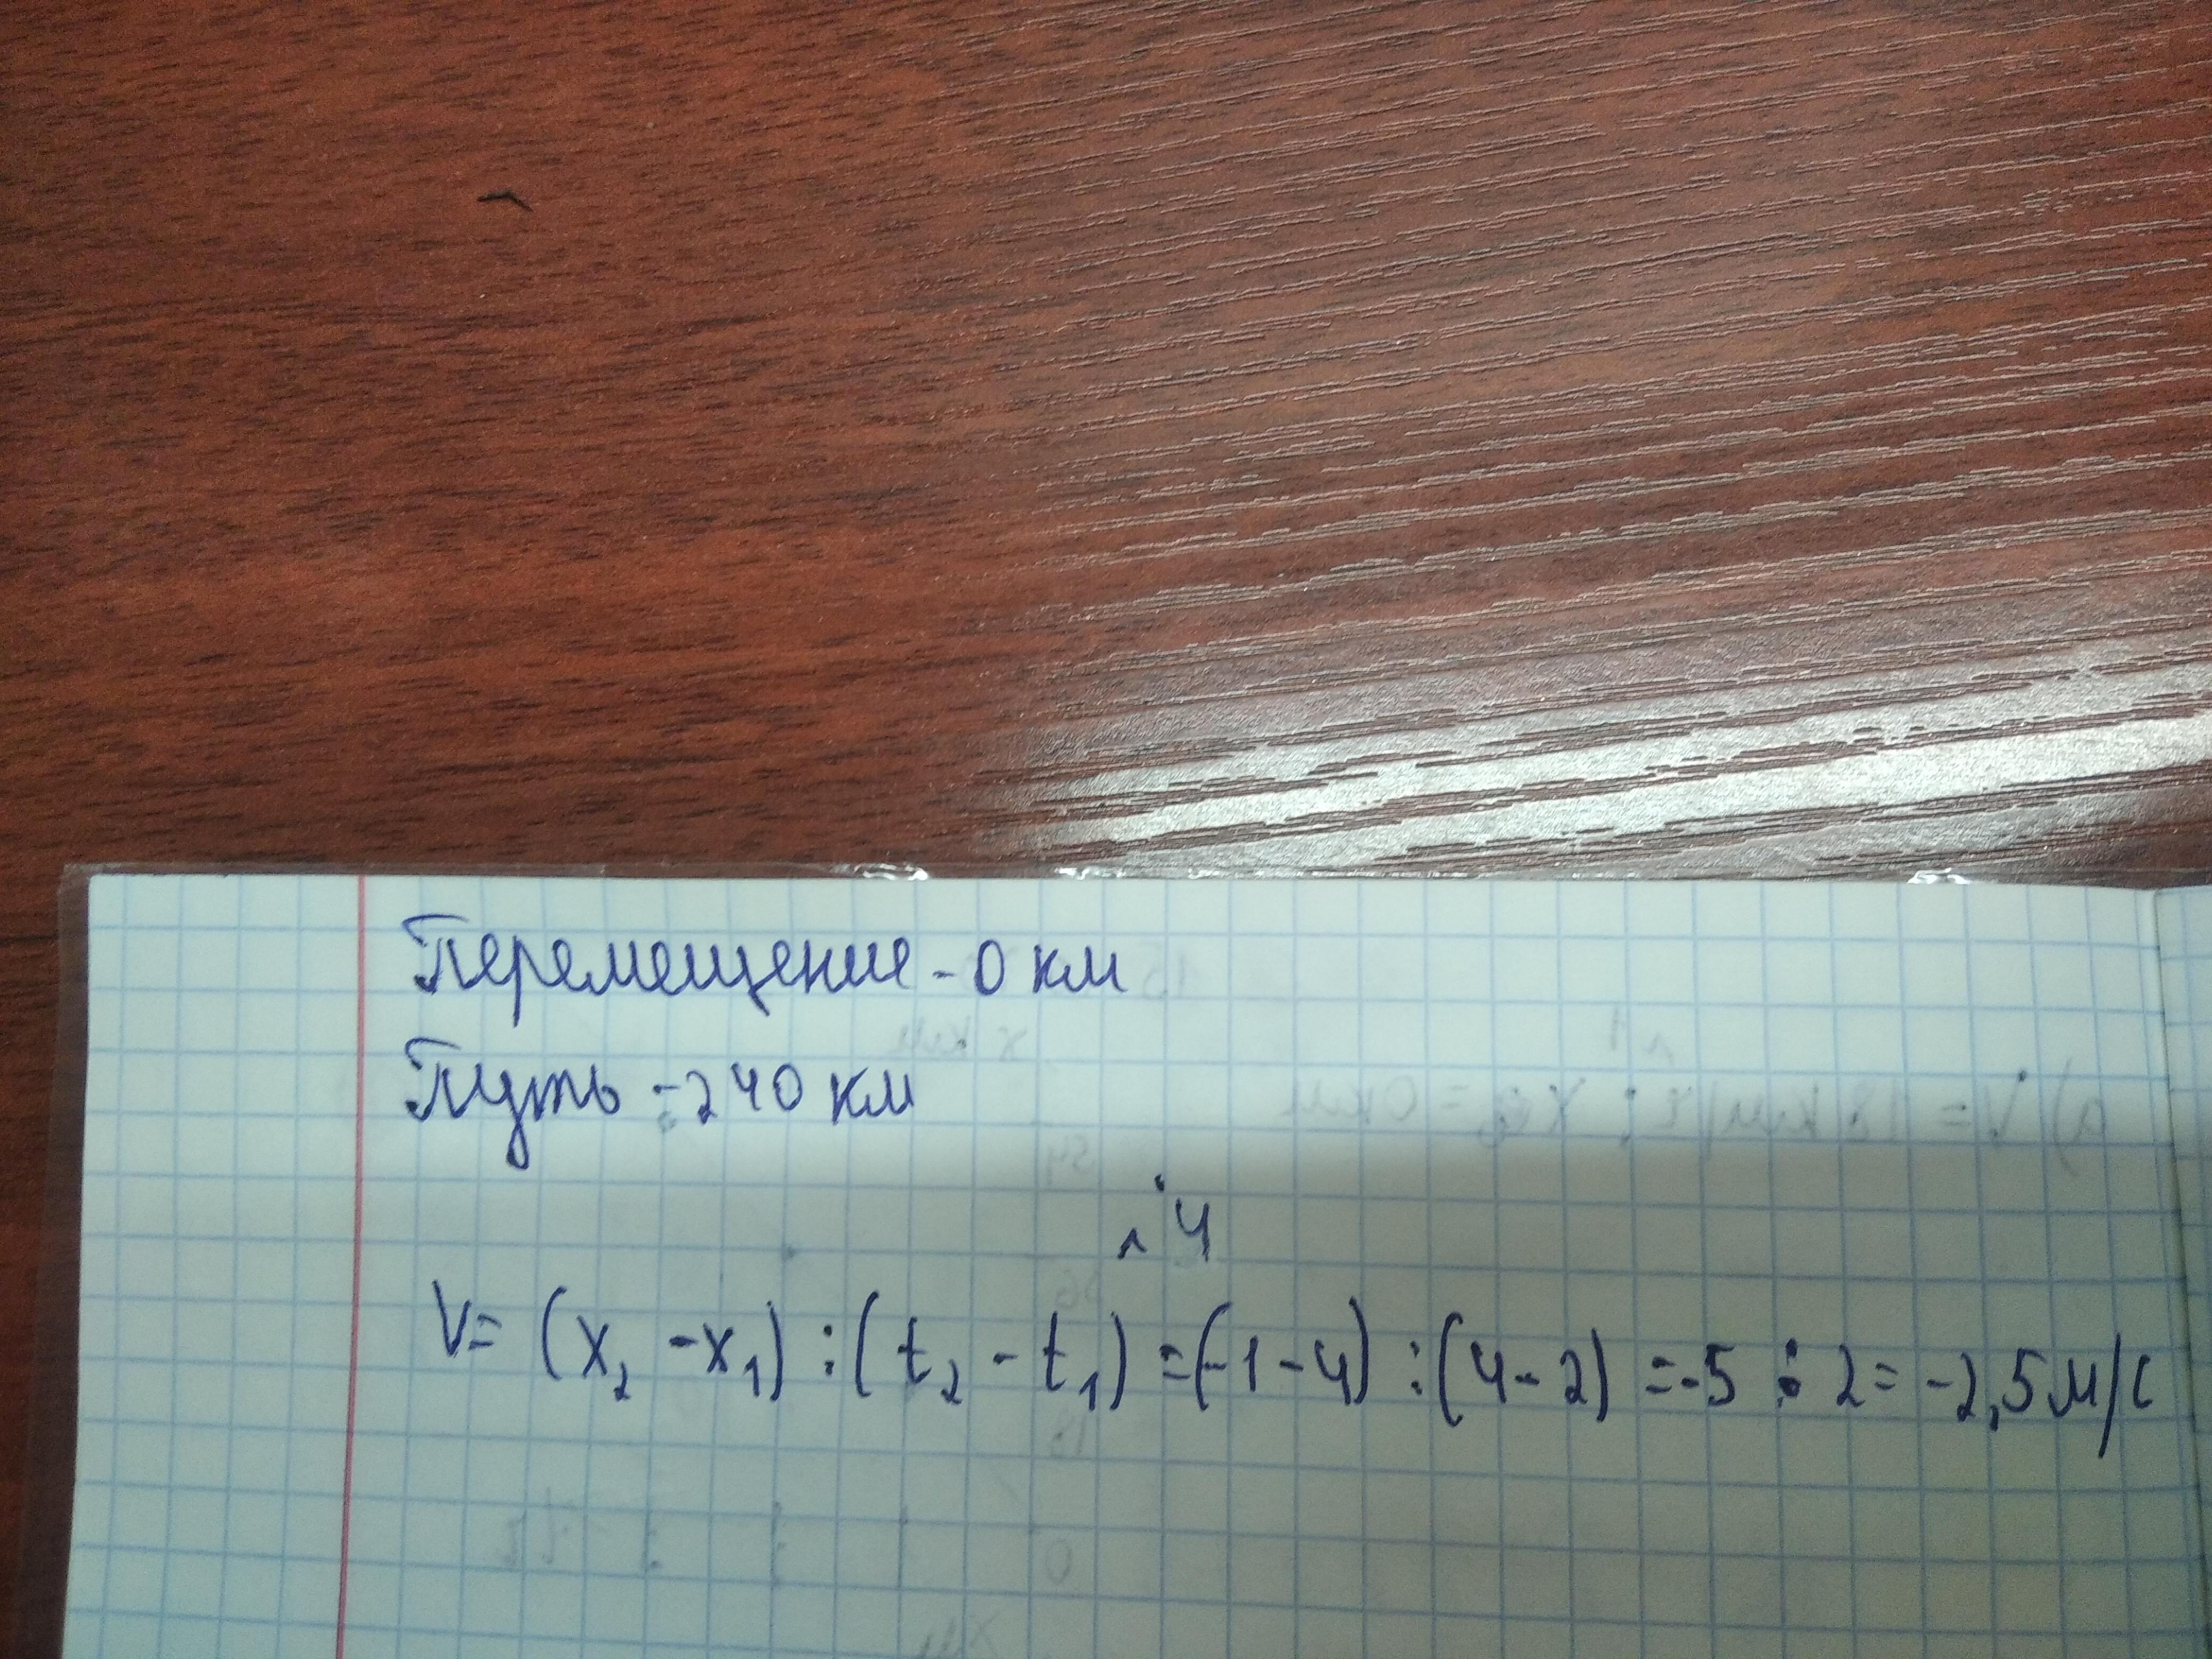 Перемещение - 0 км
Путь - 240 км
л 4
V= (x₂ - x₁) : (t₂ - t₁) = (-1 - 4) : (4 - 2) = -5 : 2 = -2,5 м/с